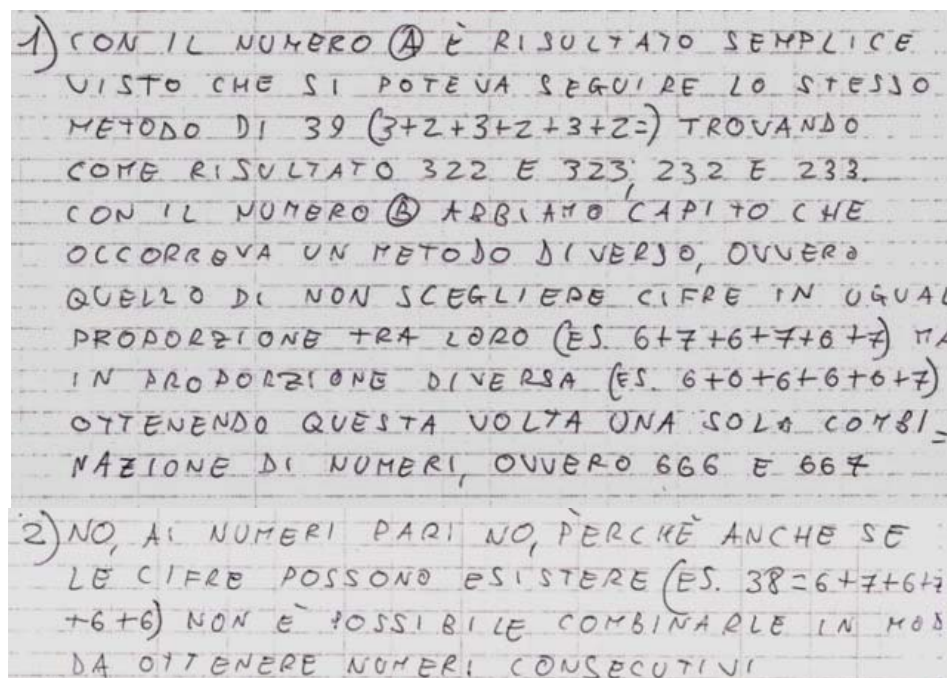 1) CON IL NUMERO Ⓐ È RISULTATO SEMPLICE
VISTO CHE SI POTEVA SEGUIRE LO STESSO
METODO DI 39 (3+2+3+2+3+2=) TROVANDO
COME RISULTATO 322 E 323; 232 E 233.
CON IL NUMERO Ⓑ ABBIAMO CAPITO CHE
OCCORREVA UN METODO DIVERSO, OVVERO
QUELLO DI NON SCEGLIERE CIFRE IN UGUAL
PROPORZIONE TRA LORO (ES. 6+7+6+7+6+7) MA
IN PROPORZIONE DIVERSA (ES. 6+6+6+6+6+7)
OTTENENDO QUESTA VOLTA UNA SOLA COMBI=
NAZIONE DI NUMERI, OVVERO 666 E 667
2) NO, AI NUMERI PARI NO, PERCHÈ ANCHE SE
LE CIFRE POSSONO ESISTERE (ES. 38=6+7+6+7
+6+6) NON È POSSIBILE COMBINARLE IN MOD
DA OTTENERE NUMERI CONSECUTIVI